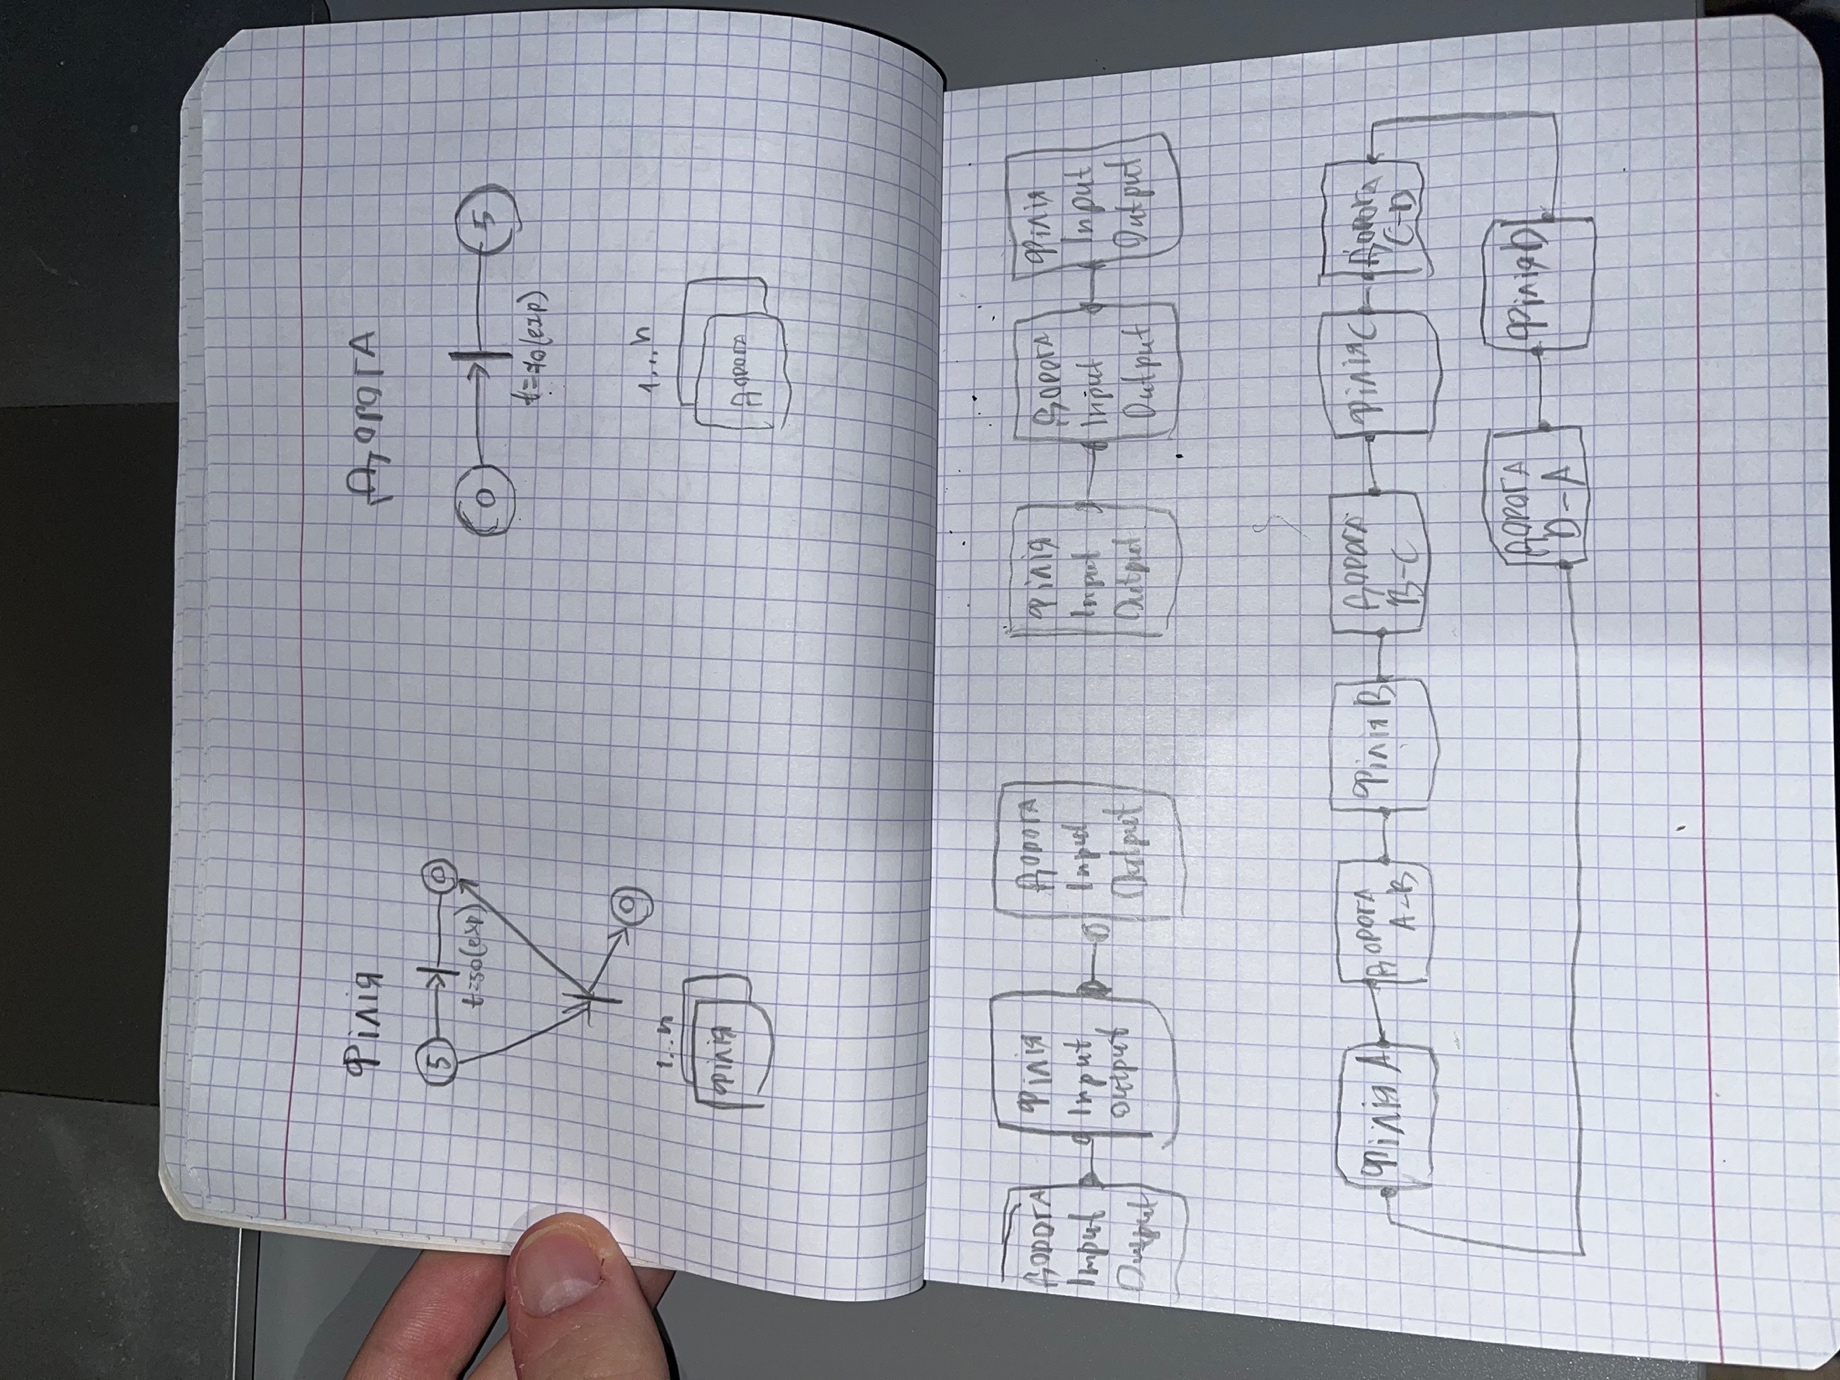 Філія
5
0
t=50(exp)
0
1...n
Філія
Дорога
0
5
t=70(exp)
1...n
Дорога
Дорога
Input
Output
Філія
Input
Output
Дорога
Input
Output
Філія
Input
Output
Дорога
Input
Output
Філія
Input
Output
Філія A
Дорога
A-B
Філія B
Дорога
B-C
Філія C
Дорога
C-D
Дорога
D-A
Філія D